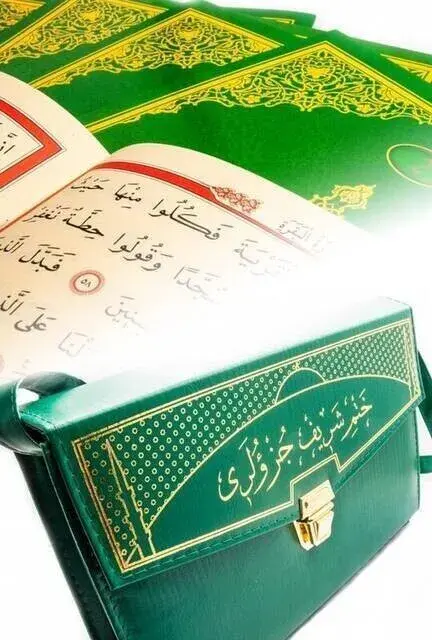 الْبَقَرَةِ
الْقَرْيَةَ فَكُلُوا مِنْهَا حَيْثُ
سُجَّدًا وَقُولُوا حِطَّةٌ نَغْفِرْ
٥٨ فَبَدَّلَ
عَلَى
ختم شريف جزؤلرى